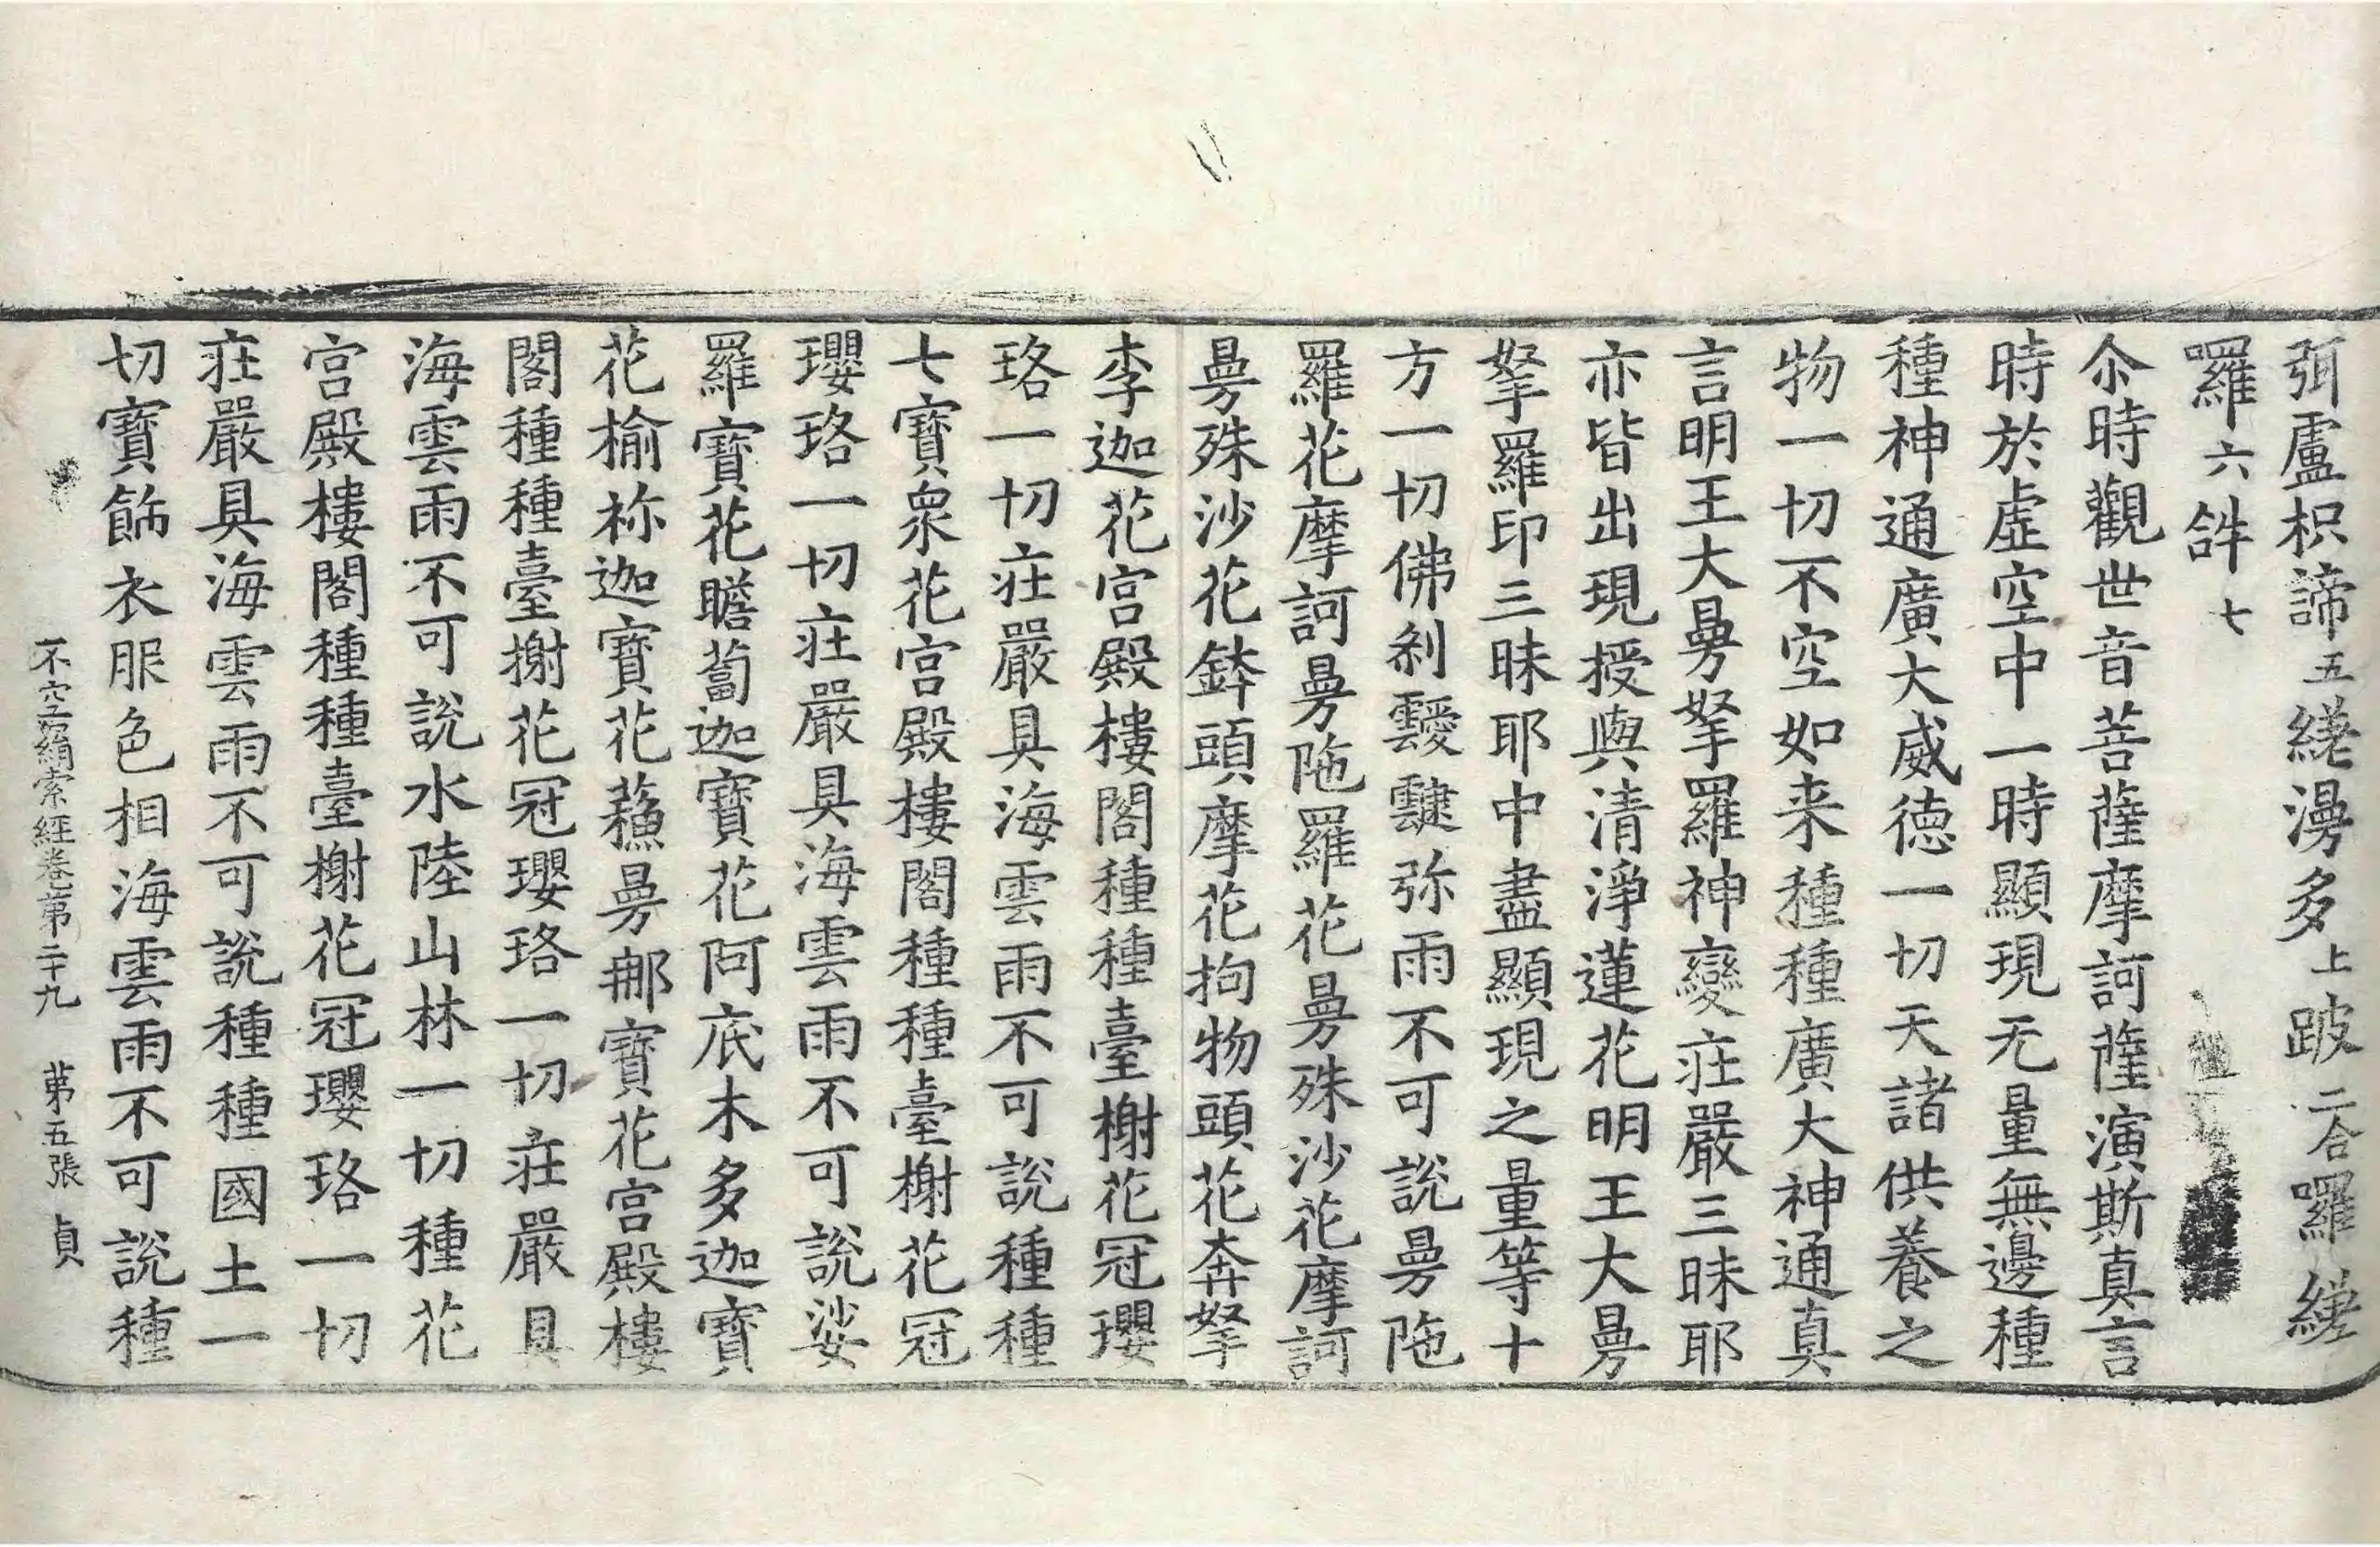 弭盧枳諦五縒湯多上跛二合囉縒
囉六鉡七
尒時觀世音菩薩摩訶薩演斯真言
時於虛空中一時顯現无量無邊種
種神通廣大威德一切天諸供養之
物一切不空如来種種廣大神通真
言明王大㬅拏羅神變莊嚴三昧耶
亦皆出現授與清淨蓮花明王大㬅
拏羅印三昧耶中盡顯現之量等十
方一切佛刹靉靆弥雨不可說㬅陁
羅花摩訶㬅陁羅花㬅殊沙花摩訶
㬅殊沙花鉢頭摩花拘物頭花奔拏
李迦花宮殿樓閣種種臺榭花冠瓔
珞一切莊嚴具海雲雨不可說種種
七寶衆花宮殿樓閣種種臺榭花冠
瓔珞一切莊嚴具海雲雨不可說娑
羅寶花瞻蔔迦寶花阿底木多迦寶
花榆祢迦寶花蘓㬅郍寶花宮殿樓
閣種種臺榭花冠瓔珞一切莊嚴具
海雲雨不可說水陸山林一切種花
宮殿樓閣種種臺榭花冠瓔珞一切
莊嚴具海雲雨不可說種種國土一
切寶飾衣服色相海雲雨不可說種
不空羂索經卷第二十九 第五張 貞